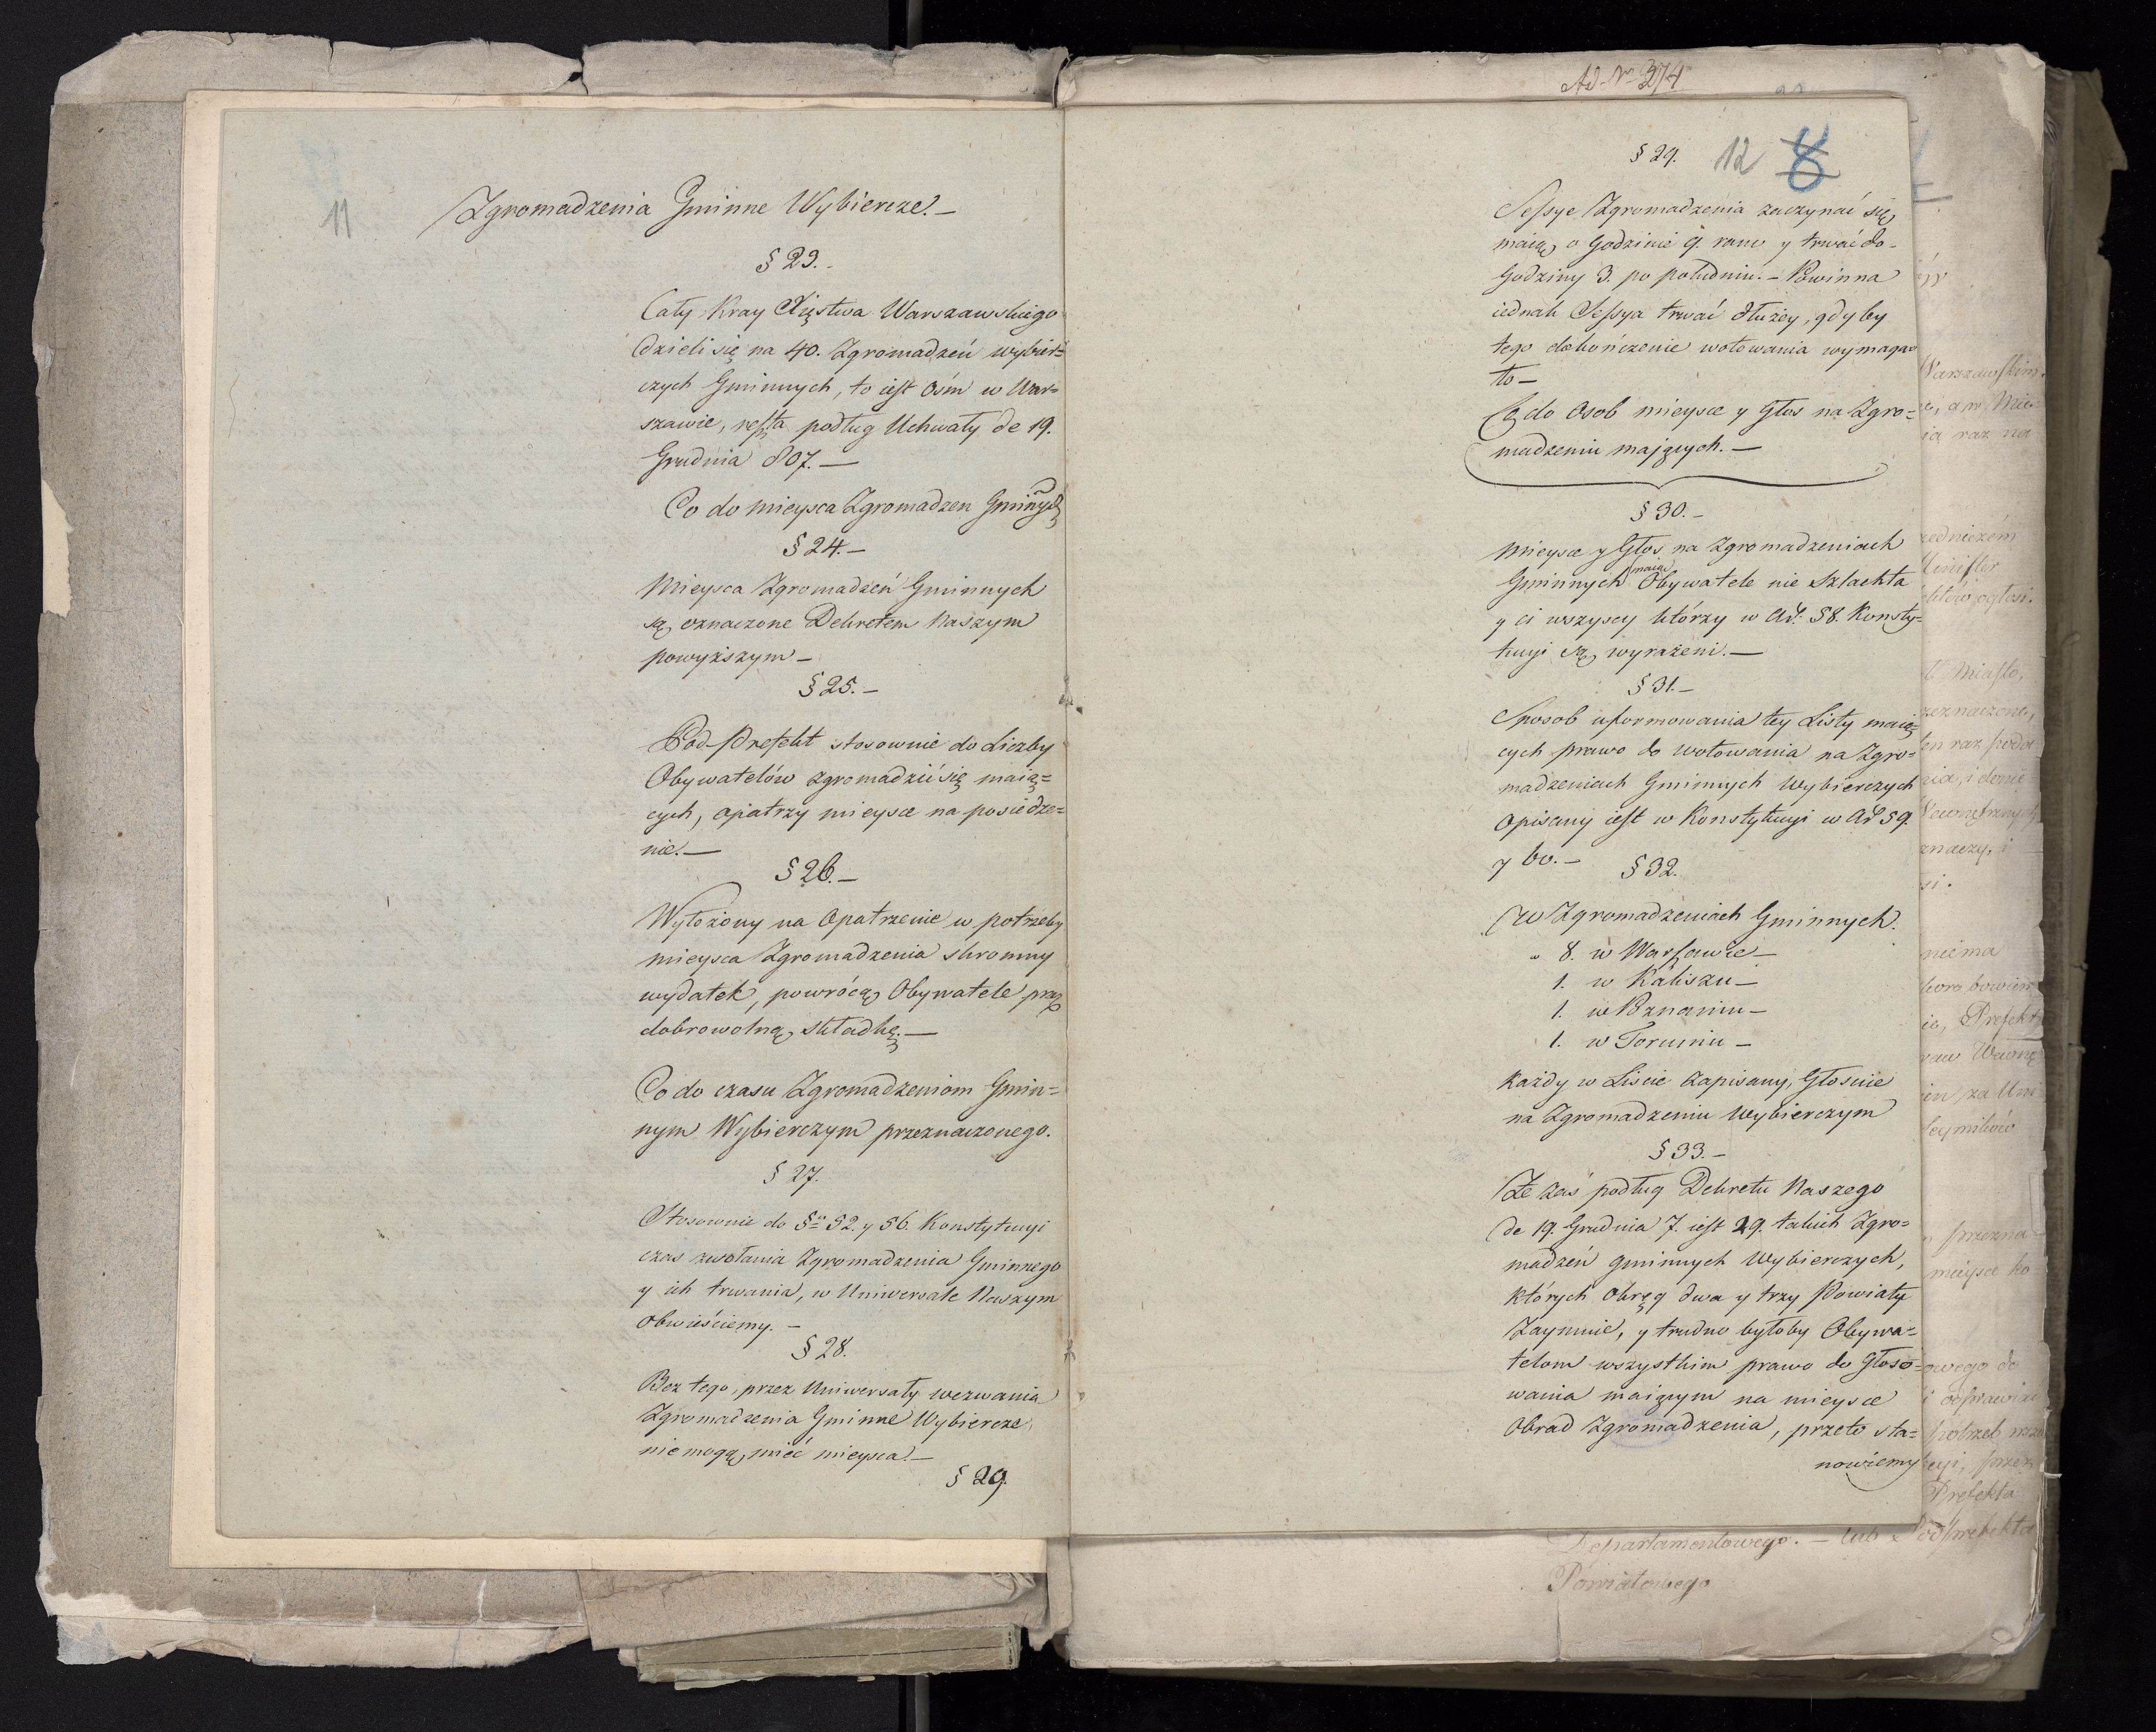 11
Zgromadzenia Gminne Wybiercze. —
§ 23. -
Cały Kray Xięstwa Warszawskiego
dzieli się na 40. Zgromadzeń wybier=
czych Gminnych, to iest ośm w War=
szawie, reszta podług Uchwały de 19.
Grudnia 807. —
Co do mieysca Zgromadzen Gminnych
§ 24. —
Mieysca Zgromadzeń Gminnych
są oznaczone Dekretem Naszym
powyższym —
§ 25. —
Pod-Prefekt stosownie do Liczby
Obywatelów zgromadzić się maią=
cych, opatrzy mieysce na posiedze=
nie. —
§ 26. —
Wyłożony na opatrzenie w potrzeby
mieysca Zgromadzenia skromny
wydatek, powrócą Obywatele przez
dobrowolną składkę. —
Co do czasu Zgromadzeniom Gmin=
nym Wybierczym przeznaczonego.
§ 27.
Stosownie do § 52. y 56. Konstytucyi
czas zwołania Zgromadzenia Gminnego
y ich trwania, w Uniwersale Naszym
obwieściemy. -
§ 28.
Bez tego, przez Uniwersały wezwania
Zgromadzenia Gminne Wybiercze,
nie mogą mieć mieysca. —
§ 29.
Ad No 374
§ 29. 12 8
Sessye Zgromadzenia zaczynać się
maią o Godzinie 9. rano y trwać do
Godziny 3. po południu. - Powinna
iednak Sessya trwać dłużey, gdyby
tego dokończenie wotowania wymaga=
ło —
Co do Osob mieysce y Głos na Zgro=
madzeniu mających. —
§ 30. -
Mieysce y Głos na Zgromadzeniach
Gminnych maią Obywatele nie Szlachta
y ci wszyscy którzy w Art: 58. Konsty=
tucyi są wyrażeni. —
§ 31. -
Sposob uformowania tey Listy maią=
cych prawo do wotowania na Zgro=
madzeniach Gminnych Wybierczych
opisany iest w Konstytucyi w Art 59.
y 60. -
§ 32.
W Zgromadzeniach Gminnych.
" 8. w Warszawie —
1. w Kaliszu —
1. w Poznaniu —
1. w Toruniu —
Każdy w Liscie zapisany, Głosuie
na Zgromadzeniu Wybierczym
§ 33. -
Że zaś podług Dekretu Naszego
de 19. Grudnia 7. iest 29. takich Zgro=
madzeń gminnych Wybierczych,
których Obręg dwa y trzy Powiaty
Zaymuie, y trudno byłoby Obywa=
telom wszystkim prawo do Głoso=
wania maiącym na mieysce
Obrad Zgromadzenia, przeto sta=
nowiemy
Prefekta
Departamentowego. — lub Podprefekta
Powiatowego